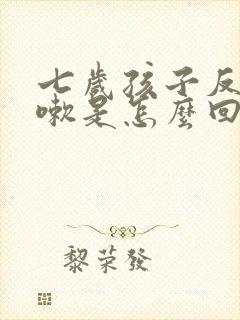 七歲孩子反
嗽是怎麼回
黎荣發